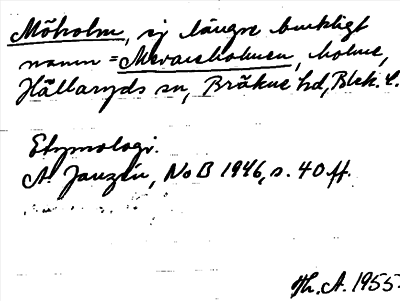 Möholm, ej längre brukligt
namn = Alvareholmen, holme,
Hällaryds sn, Bräkne hd, Blek. l.
Etymologi.
A. Janzén, NoB 1946, s. 40 ff.
Th. A. 1955.